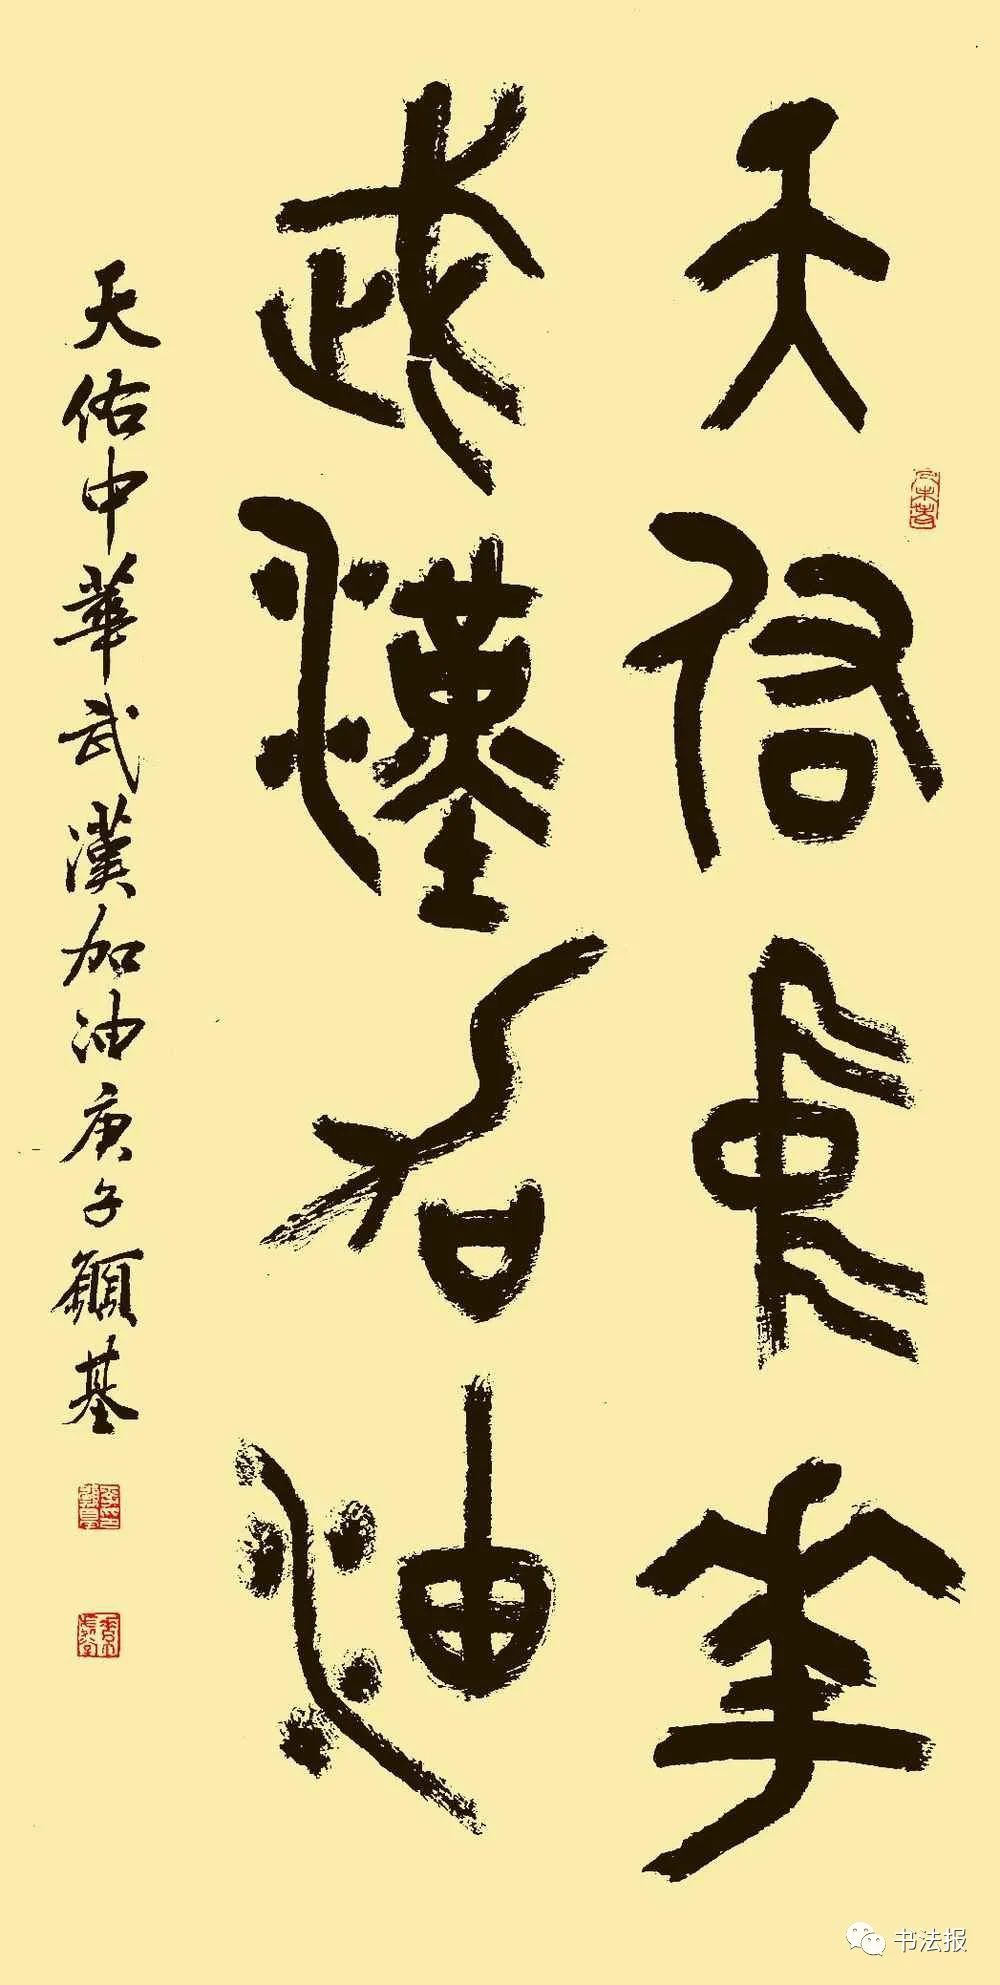 天佑中華
武漢加油
天佑中華武漢加油庚子顧基
书法报